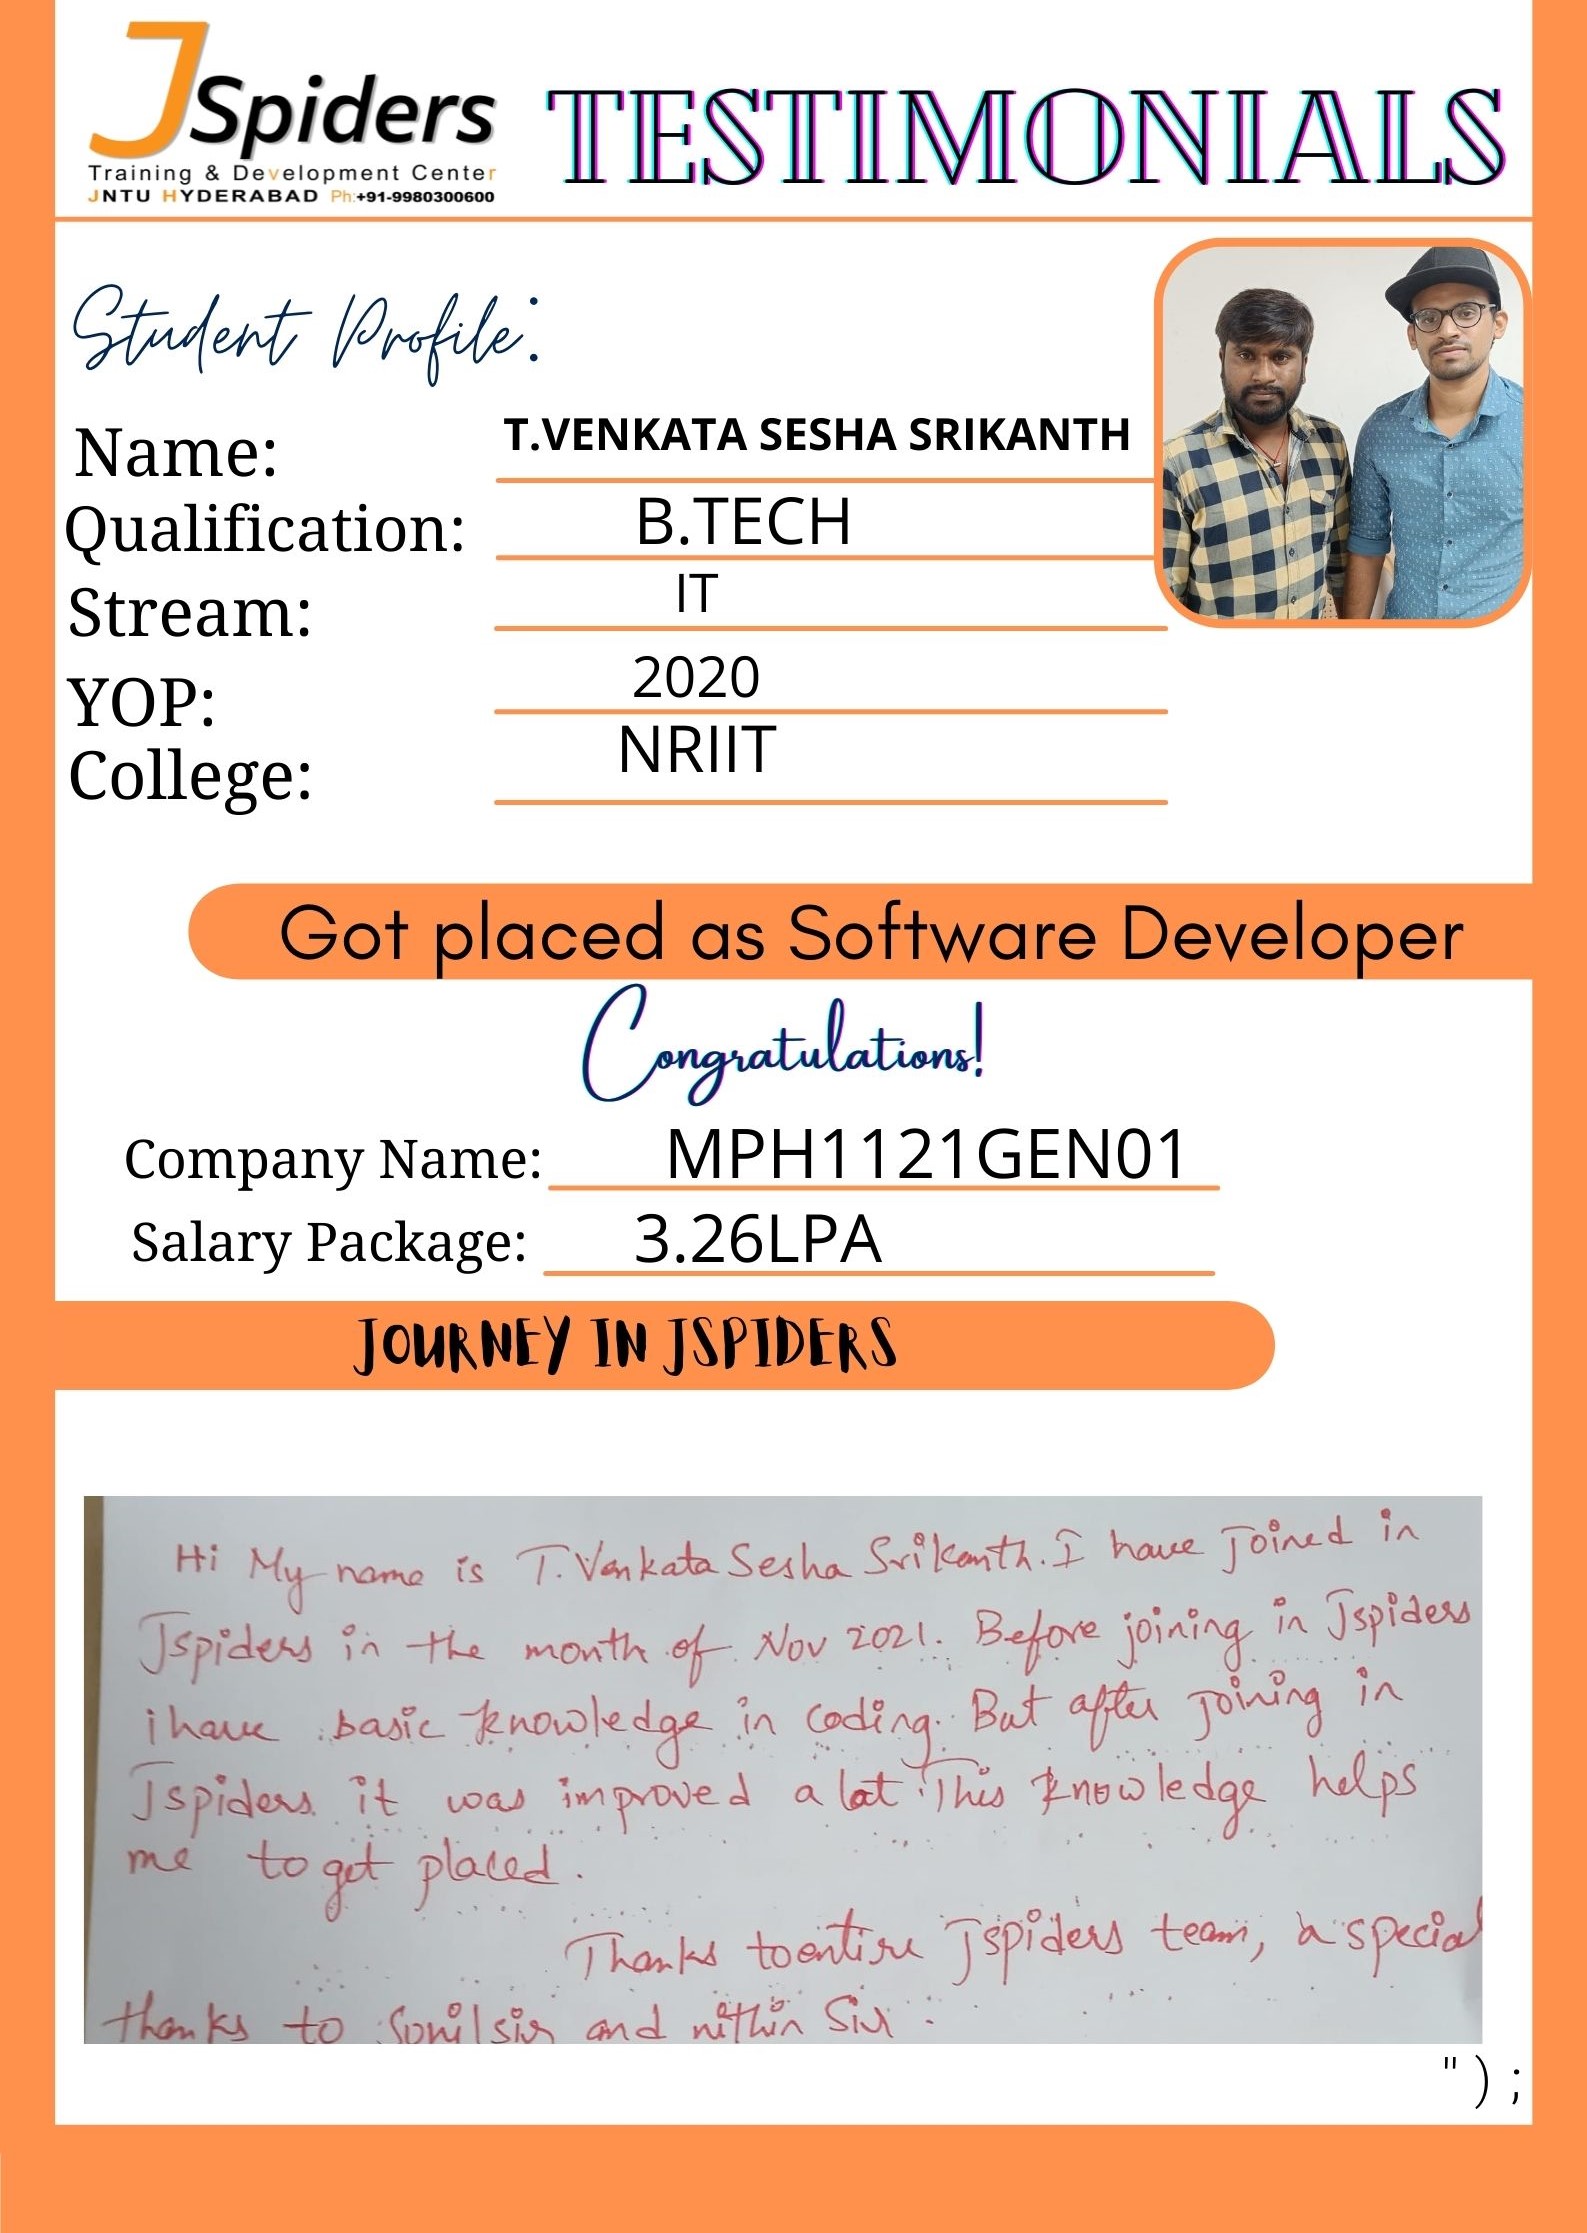 JSpiders
Training & Development Center
JNTU HYDERABAD Ph:+91-9980300600
TESTIMONIALS
Student Profile:
Name: T.VENKATA SESHA SRIKANTH
Qualification: B.TECH
Stream: IT
YOP: 2020
College: NRIIT
Got placed as Software Developer
Congratulations!
Company Name: MPH1121GEN01
Salary Package: 3.26LPA
JOURNEY IN JSPIDERS
Hi My name is T.Venkata Sesha Srikanth. I have Joined in
Jspiders in the month of Nov 2021. Before joining in Jspiders
i have basic knowledge in coding. But after joining in
Jspiders it was improved a lot. This knowledge helps
me to get placed.
Thanks to entire Jspiders team, a special
thanks to Sunil sir and nithin Sir.
");